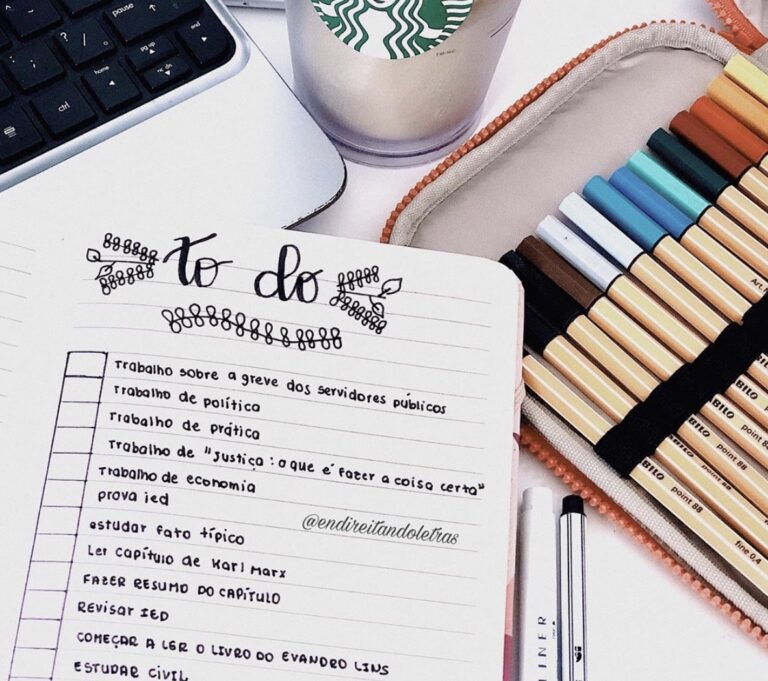 to do
Trabalho sobre a greve dos servidores públicos
Trabalho de política
Trabalho de prática
Trabalho de "Justiça: o que é fazer a coisa certa"
Trabalho de economia
prova ied
estudar fato típico
Ler capítulo de Karl Marx
FAZER RESUMO DO CAPÍTULO
REVISAR IED
COMEÇAR A LER O LIVRO DO EVANDRO LINS
ESTUDAR CIVIL
@endireitandoletras
pause
home
pg up
pg dn
end
ctrl
BILO point 88
BILO point 88
BILO point 88
point 88
fine 0,4
LINER